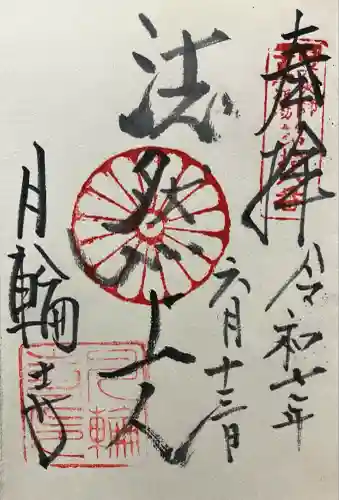 奉拝
令和七年
六月十三日
法然上人
月輪寺